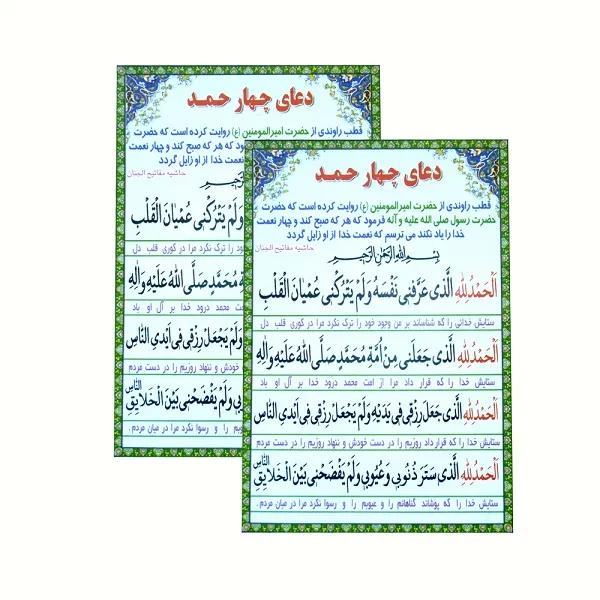 دعای چهار حمد
قطب راوندی از حضرت امیرالمومنین (ع) روایت کرده است که حضرت
ود که هر که صبح کند و چهار نعمت
نعمت خدا از او زایل گردد
حاشیه مفاتیح الجنان
وَلَمْ يَتْرُكْنى عُمْيانَ الْقَلْبِ
ود را ترک نکرد مرا در کوری قلب دل
مُحَمَّدٍ صَلَّى اللهُ عَلَيْهِ وَآلِهِ
ت محمد درود خدا بر آل او باد
وَلَمْ يَجْعَلْ رِزْقى فى اَيْدِى النّاسِ
خودش و ننهاد روزیم را در دست مردم
بى وَلَمْ يَفْضَحْنى بَيْنَ الْخَلايِقِ النّاسِ
یم را و رسوا نکرد مرا در میان مردم
دعای چهار حمد
قطب راوندی از حضرت امیرالمومنین (ع) روایت کرده است که حضرت
حضرت رسول صلی الله علیه و آله فرمود که هر که صبح کند و چهار نعمت
خدا را یاد نکند می ترسم که نعمت خدا از او زایل گردد
حاشیه مفاتیح الجنان
بِسْمِ اللهِ الرَّحْمٰنِ الرَّحيمِ
اَلْحَمْدُ لِلّهِ الَّذى عَرَّفَنى نَفْسَهُ وَلَمْ يَتْرُكْنى عُمْيانَ الْقَلْبِ
ستایش خدائی را که شناساند بر من وجود خود را ترک نکرد مرا در کوری قلب دل
اَلْحَمْدُ لِلّهِ الَّذى جَعَلَنى مِنْ اُمَّةِ مُحَمَّدٍ صَلَّى اللهُ عَلَيْهِ وَآلِهِ
ستایش خدا را که قرار داد مرا از امت محمد درود خدا بر آل او باد
اَلْحَمْدُ لِلّهِ الَّذى جَعَلَ رِزْقى فى يَدَيْهِ وَلَمْ يَجْعَلْ رِزْقى فى اَيْدِى النّاسِ
ستایش خدا را که قرار داد روزیم را در دست خودش و ننهاد روزیم را در دست مردم
اَلْحَمْدُ لِلّهِ الَّذى سَتَرَ ذُنُوبى وَعُيُوبى وَلَمْ يَفْضَحْنى بَيْنَ الْخَلايِقِ النّاسِ
ستایش خدا را که پوشاند گناهانم را و عیوبم را و رسوا نکرد مرا در میان مردم.